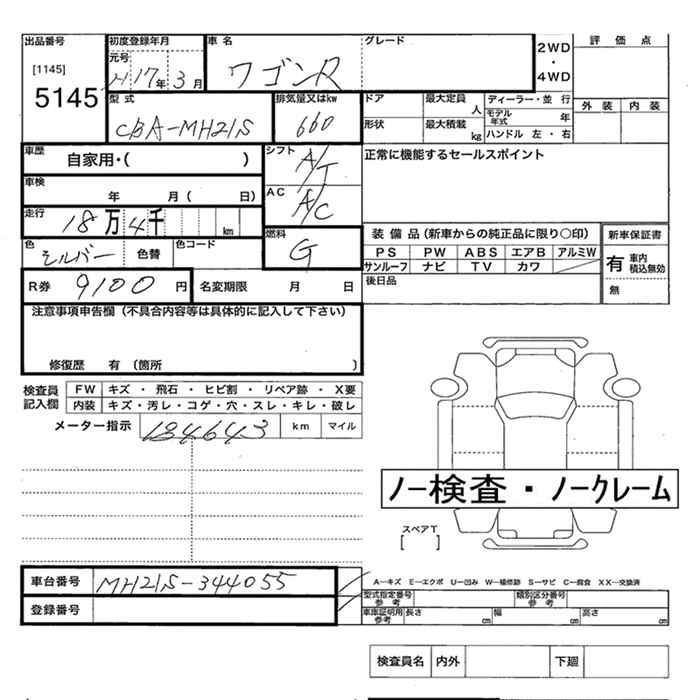 出品番号 初度登録年月 車名 グレード
[1145] 元号
5145 H 17 年 3 月 ワゴンR
2WD ・ 4WD
評価点
外装 内装
型式 排気量又はkw
CBA-MH21S 660
ドア 最大定員 人 ディーラー・並行
モデル年式 年
形状 最大積載 kg ハンドル 左・右
車歴 自家用・( ) シフト A/T
正常に機能するセールスポイント
車検 年 月 ( 日) AC A/C
走行 18 万 4 千 km
燃料 G
色 シルバー 色替 色コード
装備品 (新車からの純正品に限り○印) 新車保証書
PS PW ABS エアB アルミW
サンルーフ ナビ TV カワ
有 車内積込無効
後日品 無
R券 9100 円 名変期限 月 日
注意事項申告欄 (不具合内容等は具体的に記入して下さい)
修復歴 有 (箇所 )
検査員記入欄
FW キズ ・ 飛石 ・ ヒビ割 ・ リペア跡 ・ X要
内装 キズ・汚レ・コゲ・穴・スレ・キレ・破レ
メーター指示 184643 km マイル
ノー検査・ノークレーム
スペアT
[ ]
車台番号 MH21S-344055
登録番号
A—キズ E—エクボ U—凹み W—補修跡 S—サビ C—腐食 XX—交換済
型式指定番号 参考 類別区分番号 参考
車庫証明用 参考 長さ cm 幅 cm 高さ cm
検査員名 内外 下廻